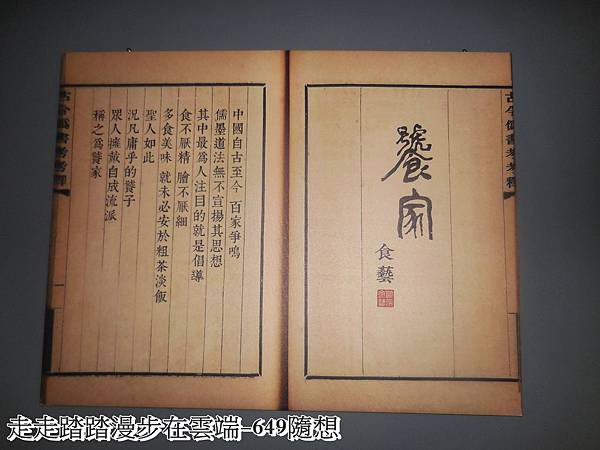 古今僞書考考釋
饕家
食藝
中國自古至今 百家爭鳴
儒墨道法無不宣揚其思想
其中最為人注目的就是倡導
食不厭精 膾不厭細
多食美味 就未必安於粗茶淡飯
聖人如此
況凡庸乎的饕子
眾人擁戴自成流派
稱之為饕家
古今僞書考考釋
一
走走踏踏漫步在雲端-649隨想